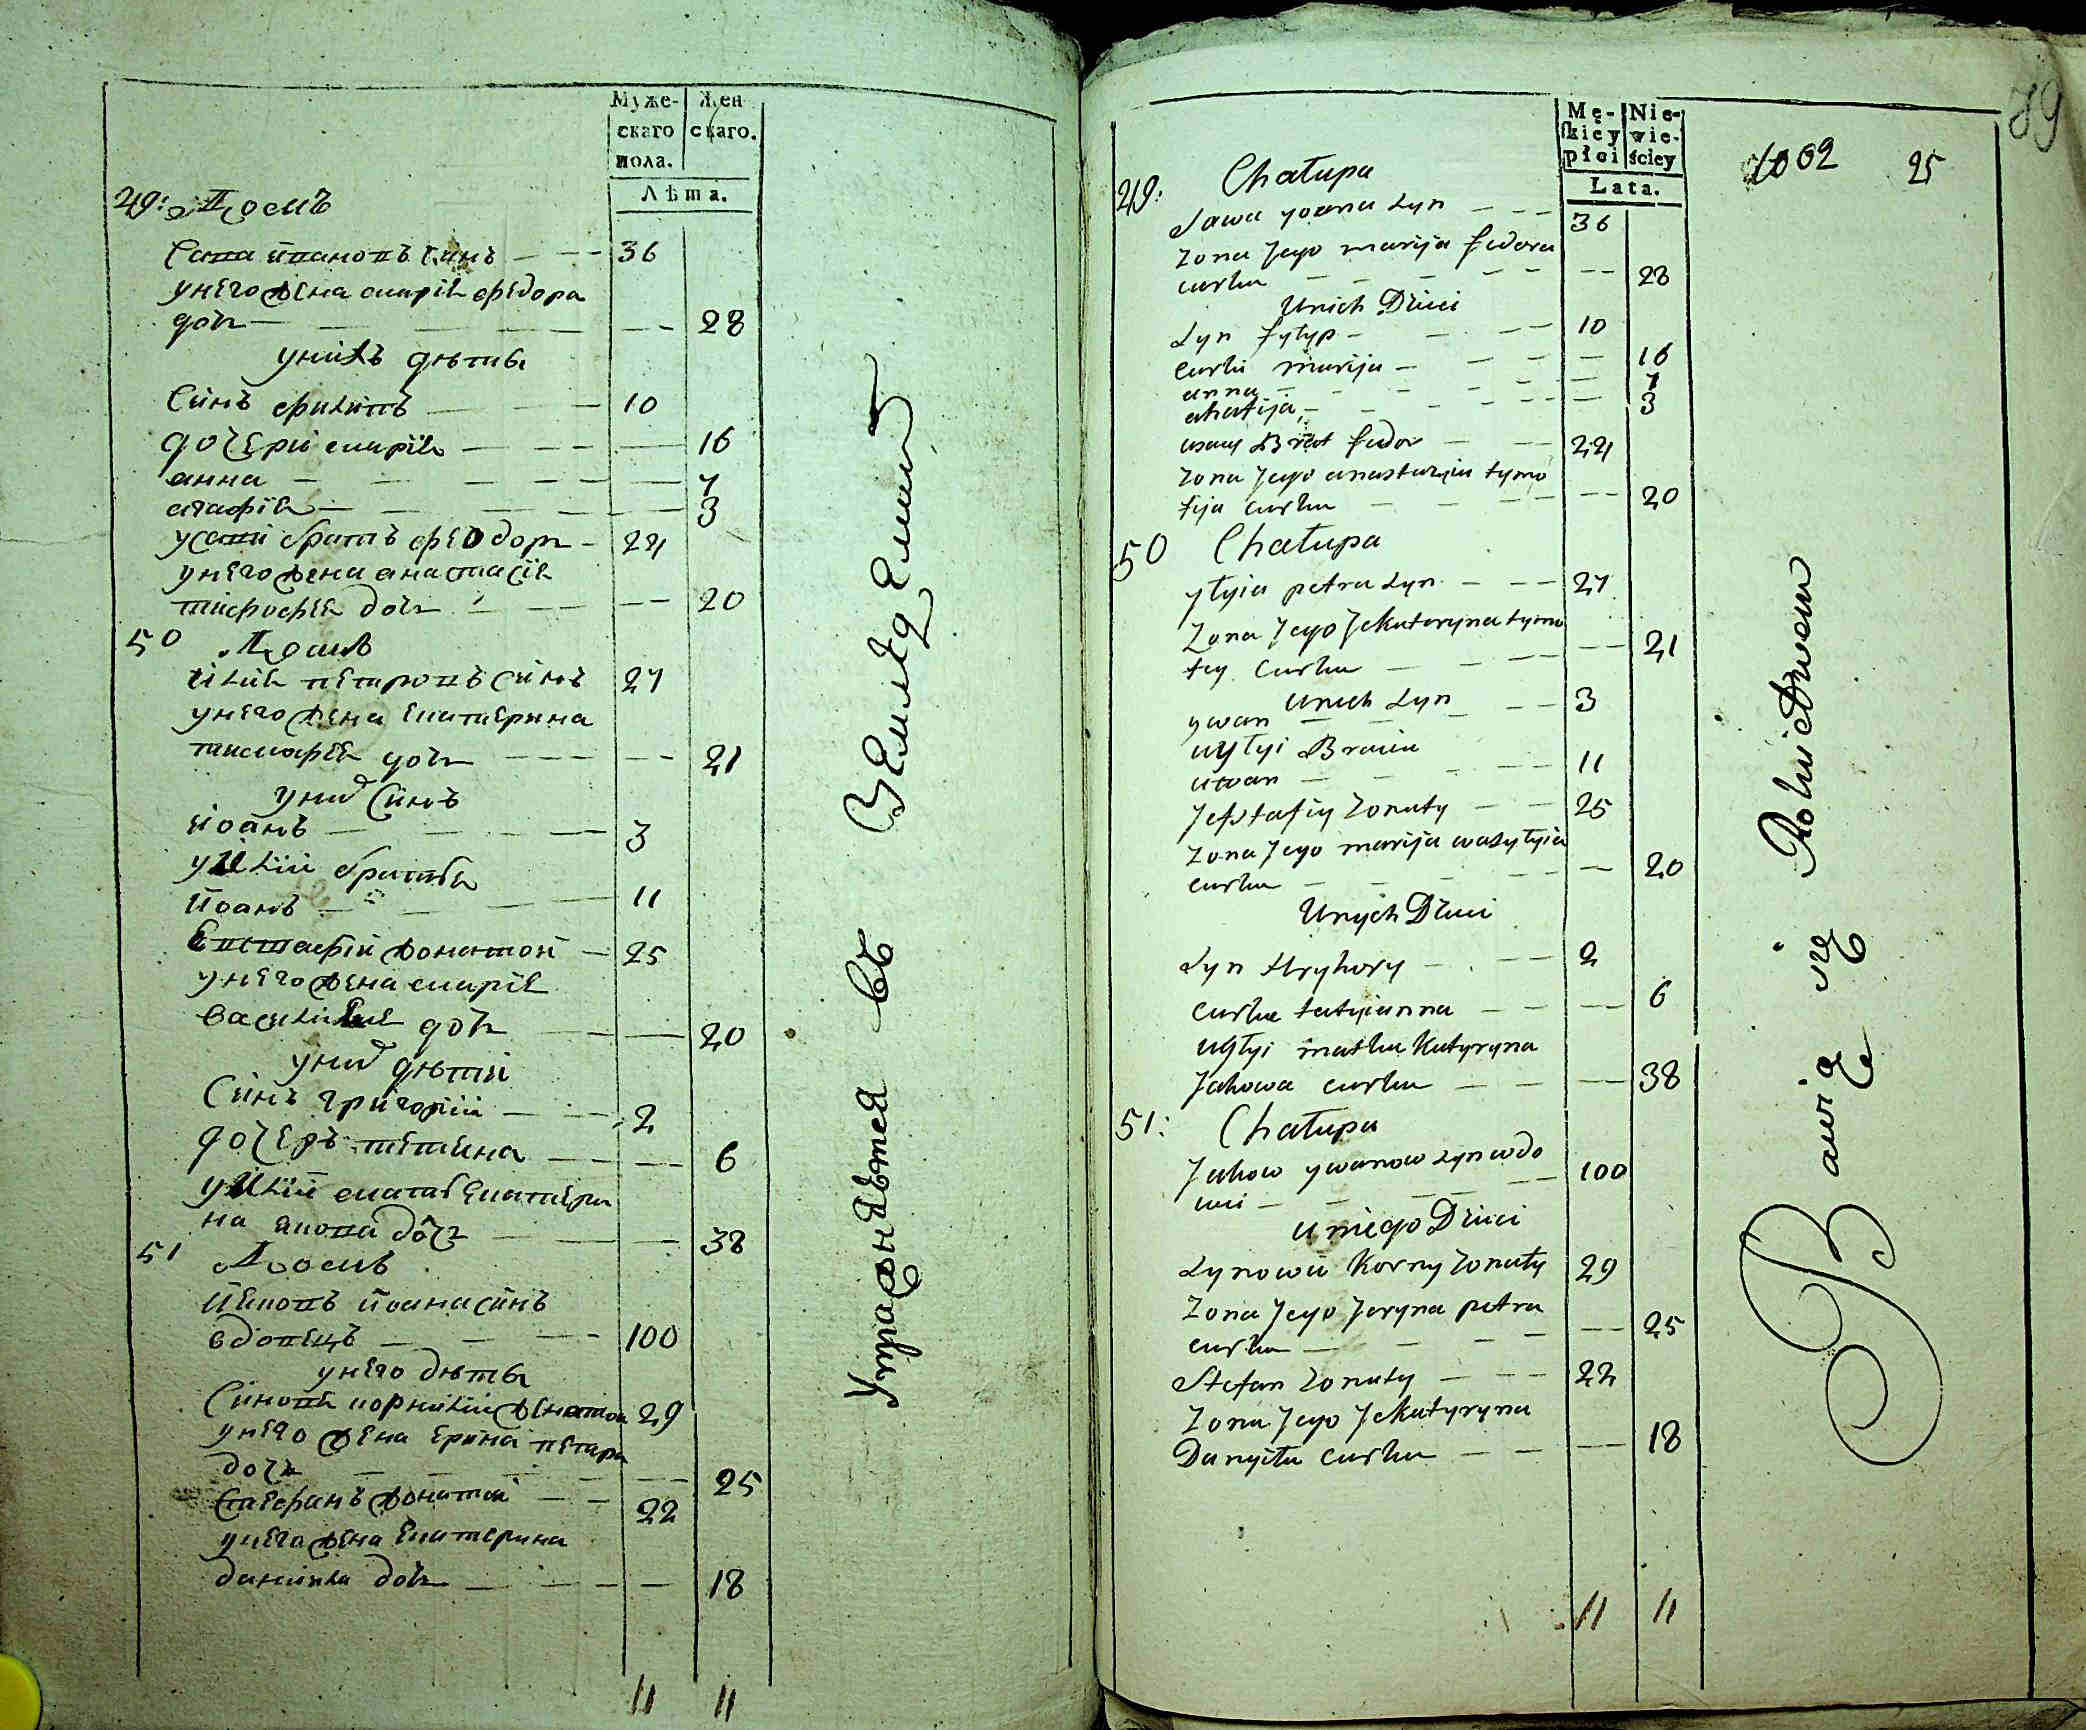 Муже-
скаго
пола.
Жен
скаго.
Лѣта.
49: Домъ
Сава ивановъ синъ 36
унего жена мария федора
дочь 28
унихъ дѣти
Синъ филипъ 10
дочери мария 16
анна 7
агафия 3
усави братъ феодоръ 24
унего жена анастасия
тимофея дочь 20
50 Домъ
илия петровъ синъ 27
унего жена екатерина
тимофея дочь 21
унихъ синъ
иоанъ 3
уилии братья
иоанъ 11
Евстафий жонатой 25
унего жена мария
василия дочь 20
унихъ дѣти
Синъ григорий 2
дочеръ тетиена 6
уилии мать екатери
на якова дочь 38
51 Домъ
Яковъ иоана синъ
вдовецъ 100
унего дѣти
Синовя корнилий женатой 29
унего жена ерина петра
дочь 25
Стефанъ жонатой 22
унего жена екатерина
данила дочь 18
11 11
Упражняется въ Земледелии
Mę-
skiey
płci
Nie-
wie-
ściey
Lata.
1002 25
79
49: Chałupa
Sawa yoana syn 36
żona Jego marija fedora
curka 28
Unich Dzieci
Syn fylyp 10
curki marija 16
anna 7
ahafija 3
usawy Brat fedor 24
żona Jego anastazyia tymo
fija curka 20
50 Chałupa
yłyia petra syn 27
Żona Jego Jekateryna tymo
fey curka 21
Unich syn
ywan 3
uyłyi Bracia
iwan 11
Jefstafiy żonaty 25
żona Jego marija wasyłyia
curka 20
Unych Dzieci
Syn Hryhory 2
curka tatyianna 6
uyłyi matka Katyryna
Jakowa curka 38
51: Chałupa
Jakow ywanow syn wdo
wiec 100
u niego Dzieci
Synowie Korny żonaty 29
Żona Jego Jeryna petra
curka 25
Stefan żonaty 22
Żona Jego Jekatyryna
Danyiła curka 18
11 11
Bawią się Rolnictwem